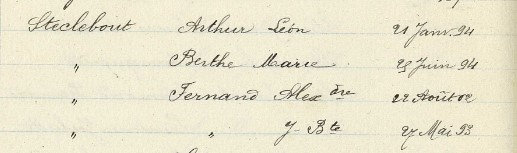 Steclebout Arthur Léon 21 Janv. 94
" Berthe Marie 25 Juin 94
" Fernand Alexdre 22 Août 02
" " J-Bte 27 Mai 93